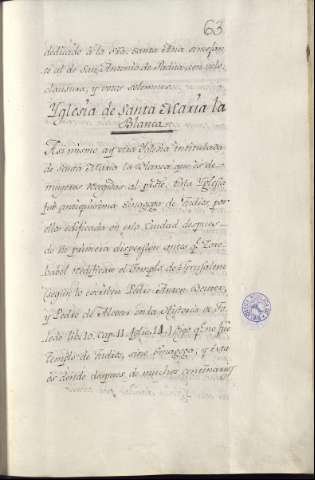 63
dedicado a la Sra. Santa Ana sinofan
te al de San Antonio de Padua, con velo
clausura, y votos solemnes.
Yglesia de Santa Maria la
Blanca
Asi mismo ay otra Yglesia intitulada
de Santa Maria la Blanca que es de
mugeres recogidas al presente. Esta Yglesia
fue antiquisima Sinagoga de Judios, por
ellos edificada en esta Ciudad despues
de su primera dispersion antes qe. Zoro
babel redificase el Templo de Hyerusalem
segun lo escriben Pedro Anton Beuter,
y Pedro de Alcocer en la Historia de To
ledo lib. 10. Cap. 11. folio 14. Digo qe. no fue
Templo de Judios, sino Sinagoga; y esta
es donde despues de muchos centenarios